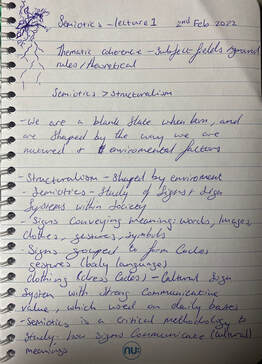 Semiotics - lecture 1 2nd Feb 2022
Thematic coherence - Subject fields ground
rules/theoretical
Semiotics > Structuralism
- We are a blank slate when born, and
are shaped by the way we are
nurured + enviromental factors
- Structuralism - Shaped by enviroment
- Semiotics - Study of Signs + Sign
Systems within Society
- Signs Conveying meaning: words, Images,
Clothes, gestures, symbols
- Signs grouped to form Codes
gestures (body language)
clothing (dress Codes) - Cultural Sign
System with strong Communicative
Value, which used on daily bases
- Semiotics is a critical methodology to
Study: how signs Communicate (cultural)
meanings
nu: